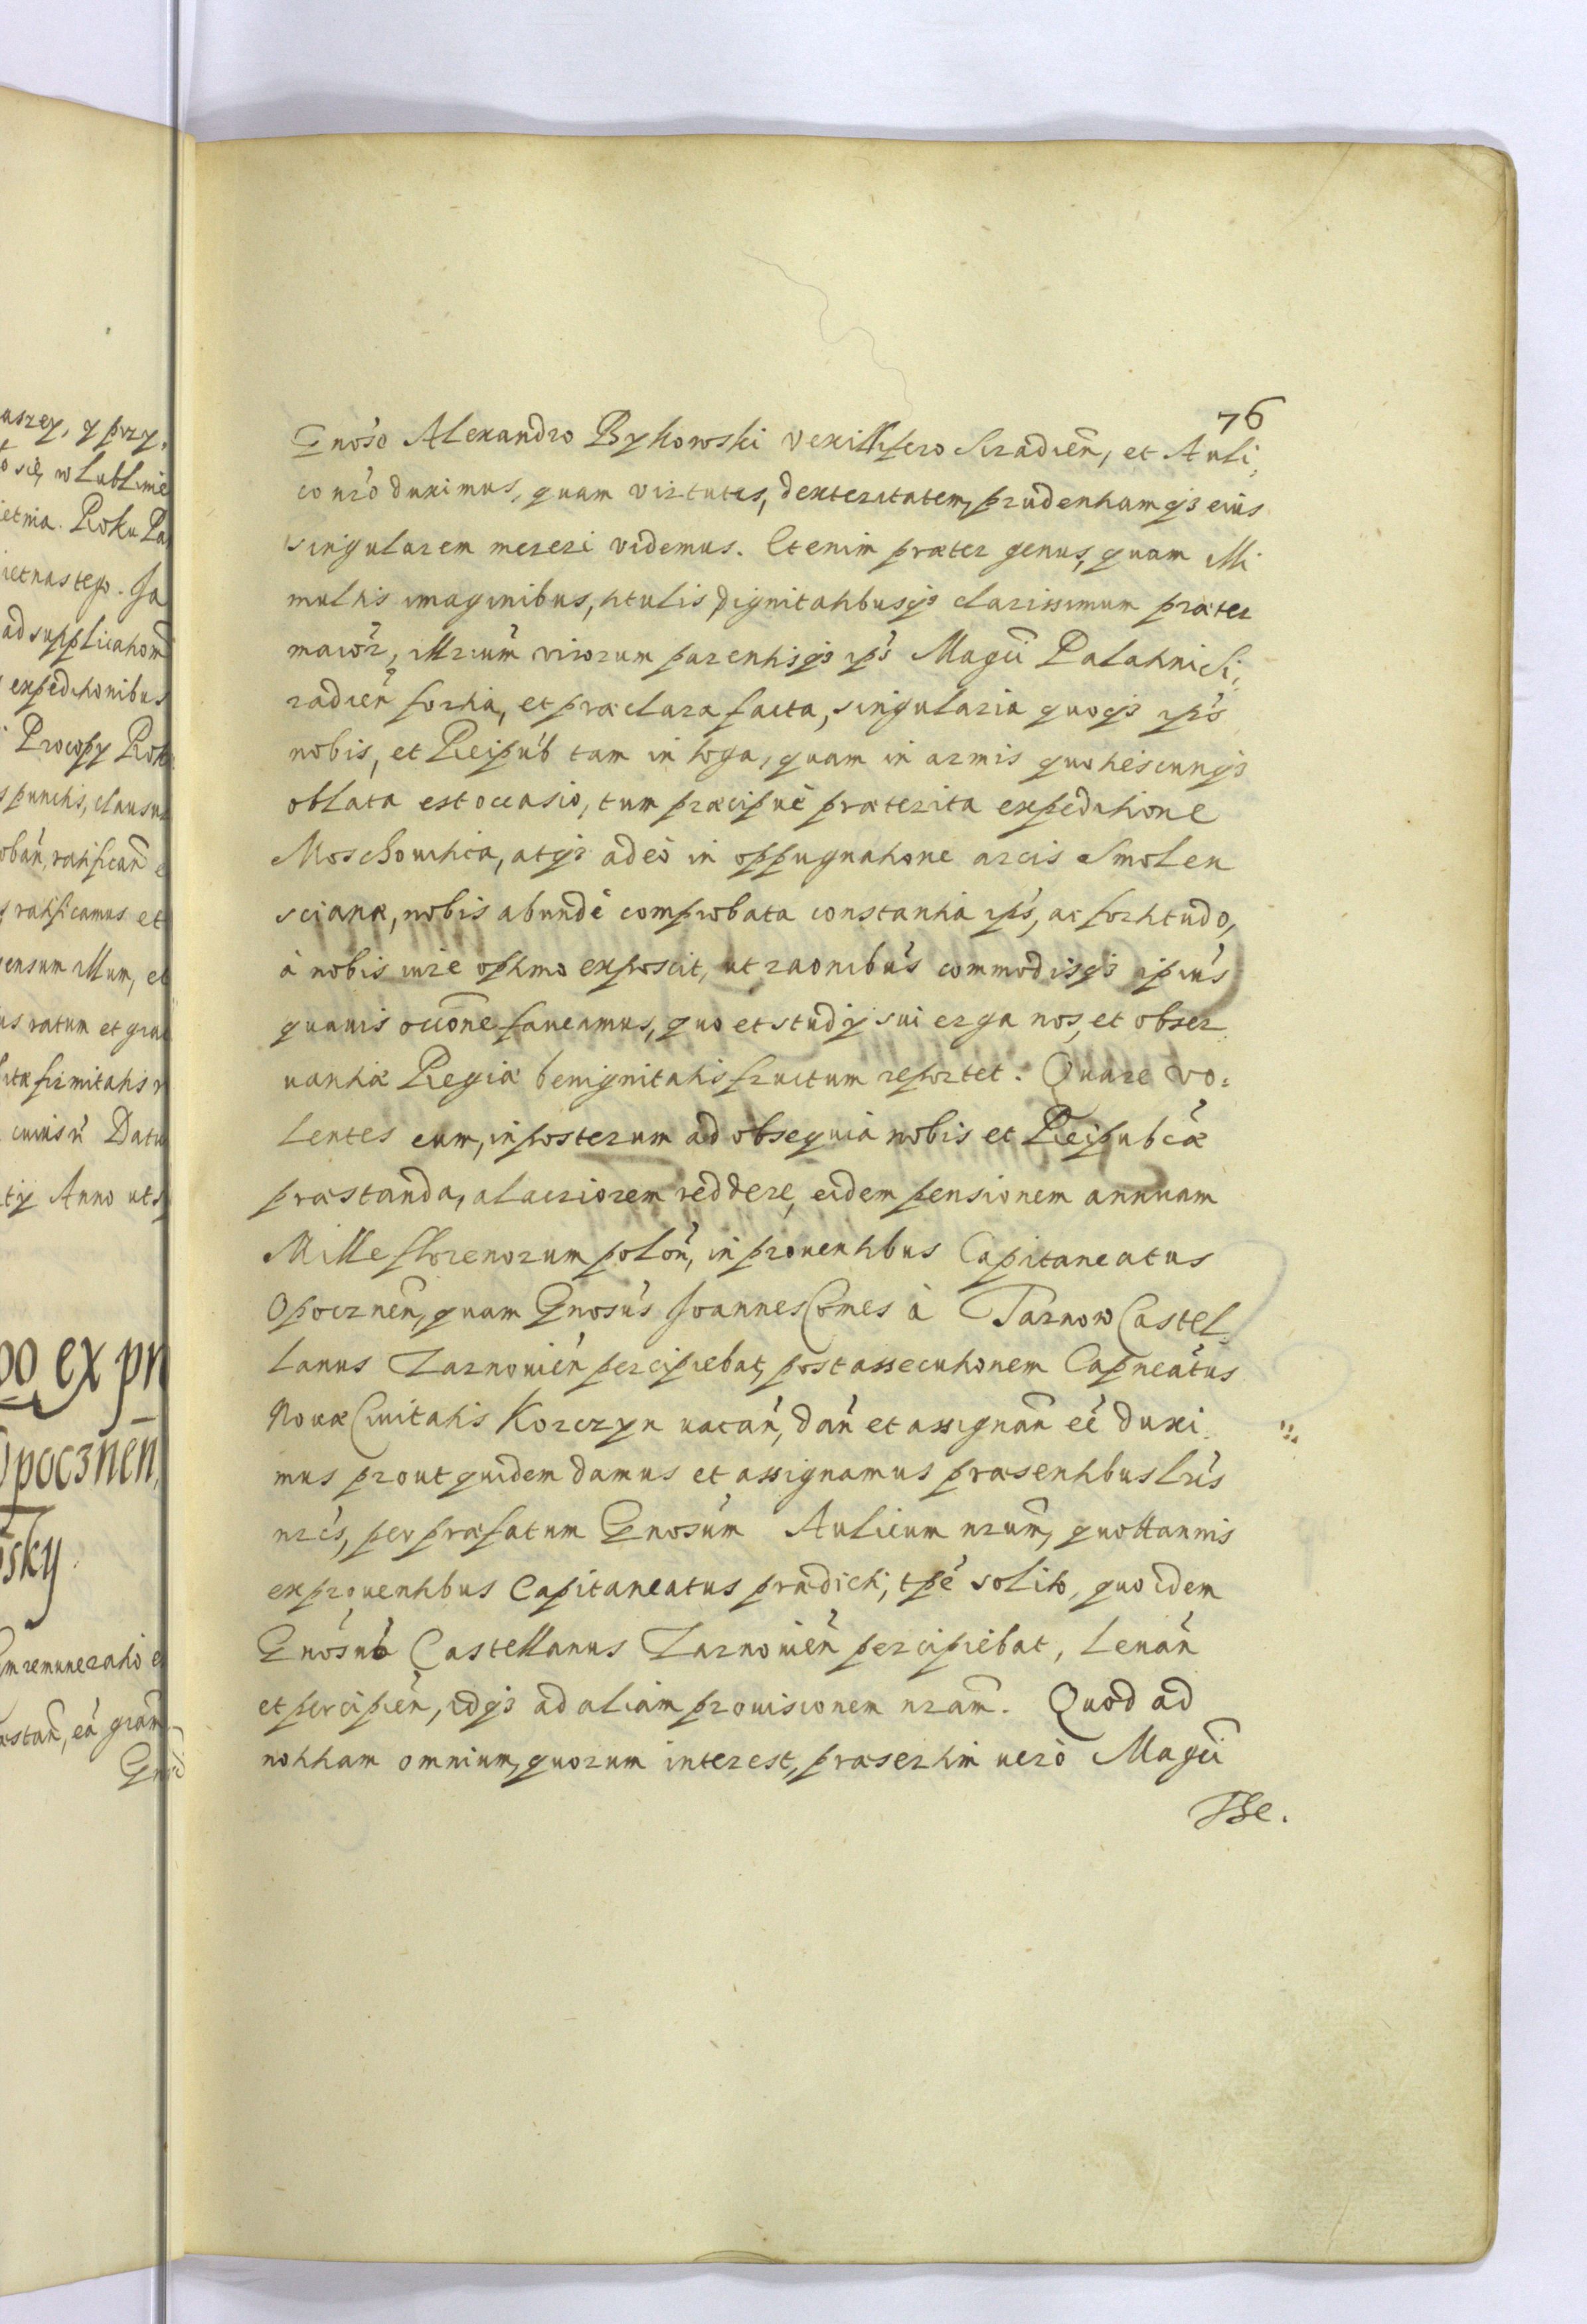 76
Gnoso Alexandro Bykowski vexillifero Siradien̄, et Auli,
co nr̄o duximus, quam virtutes, dexteritatem, prudentiamqz eius
singularem mereri videmus. Etenim præter genus, quam illi
multis imaginibus, titulis, dignitatibusqz clarissimum præter
maior̄, illrium̄ virorum parentisqz ip̄s Magci Palatini Si,
radien̄ fortia, et præclara facta, singularia quoqz ip̄s
nobis, et Reipub̄ tam in toga, quam in armis quotiescunqz
oblata est occasio, tum præcipuè præterita expeditione
Moschouitica, atqz adeò in oppugnatione arcis Smolen
scianæ, nobis abundè comprobata constantia ip̄s, ac fortitudo,
à nobis iure optimo exposcit, ut raonibus commodisqz ipius
quauis occōne faueamus, quo et studij sui erga nos, et obser
uantiæ Regiæ benignitatis fructum reportet. Quare vo:
lentes eum, in posterum ad obsequia nobis et Reipub̄cæ
præstanda, alacriorem reddere, eidem pensionem annuam
Mille florenorum polon̄, in prouentibus Capitaneatus
Opocznen̄, quam Gnosus Joannes Comes à Tarnow Castel,
lanus Zarnouien̄ percipiebat, post assecutionem Capneatus
Nouæ Ciuitatis Korczyn uacan̄, dan̄ et assignan̄ eē duxi,
mus prout quidem damus et assignamus præsentibus lr̄is
nr̄is, per præfatum Gnosum Aulicum nrum̄, quottannis
ex prouentibus Capitaneatus prædicti, tp̄e solito, quo idem
Gnosus Castellanus Zarnouien̄ percipiebat, leuan̄
et percipien̄, idqz ad aliam prouisionem nram̄. Quod ad
notitiam omnium, quorum interest, præsertim uerò Magci
The.
aszey, y przy,
o się, w Lublinie
ietnia. Roku Pa
ietnastego. Ja
ad supplicationem̄
expeditionibus
Procopy Rok
punctis, clausu
oban̄, ratifican̄ e
ratificamus et
ensum illum, et
us ratum et gra
itæ firmitatis r
cuius r̄ Datu
tij Anno uts
oo ex pr
Opocznen,
sky.
m remuneratio e
æstan̄, ea gram̄
Gnō